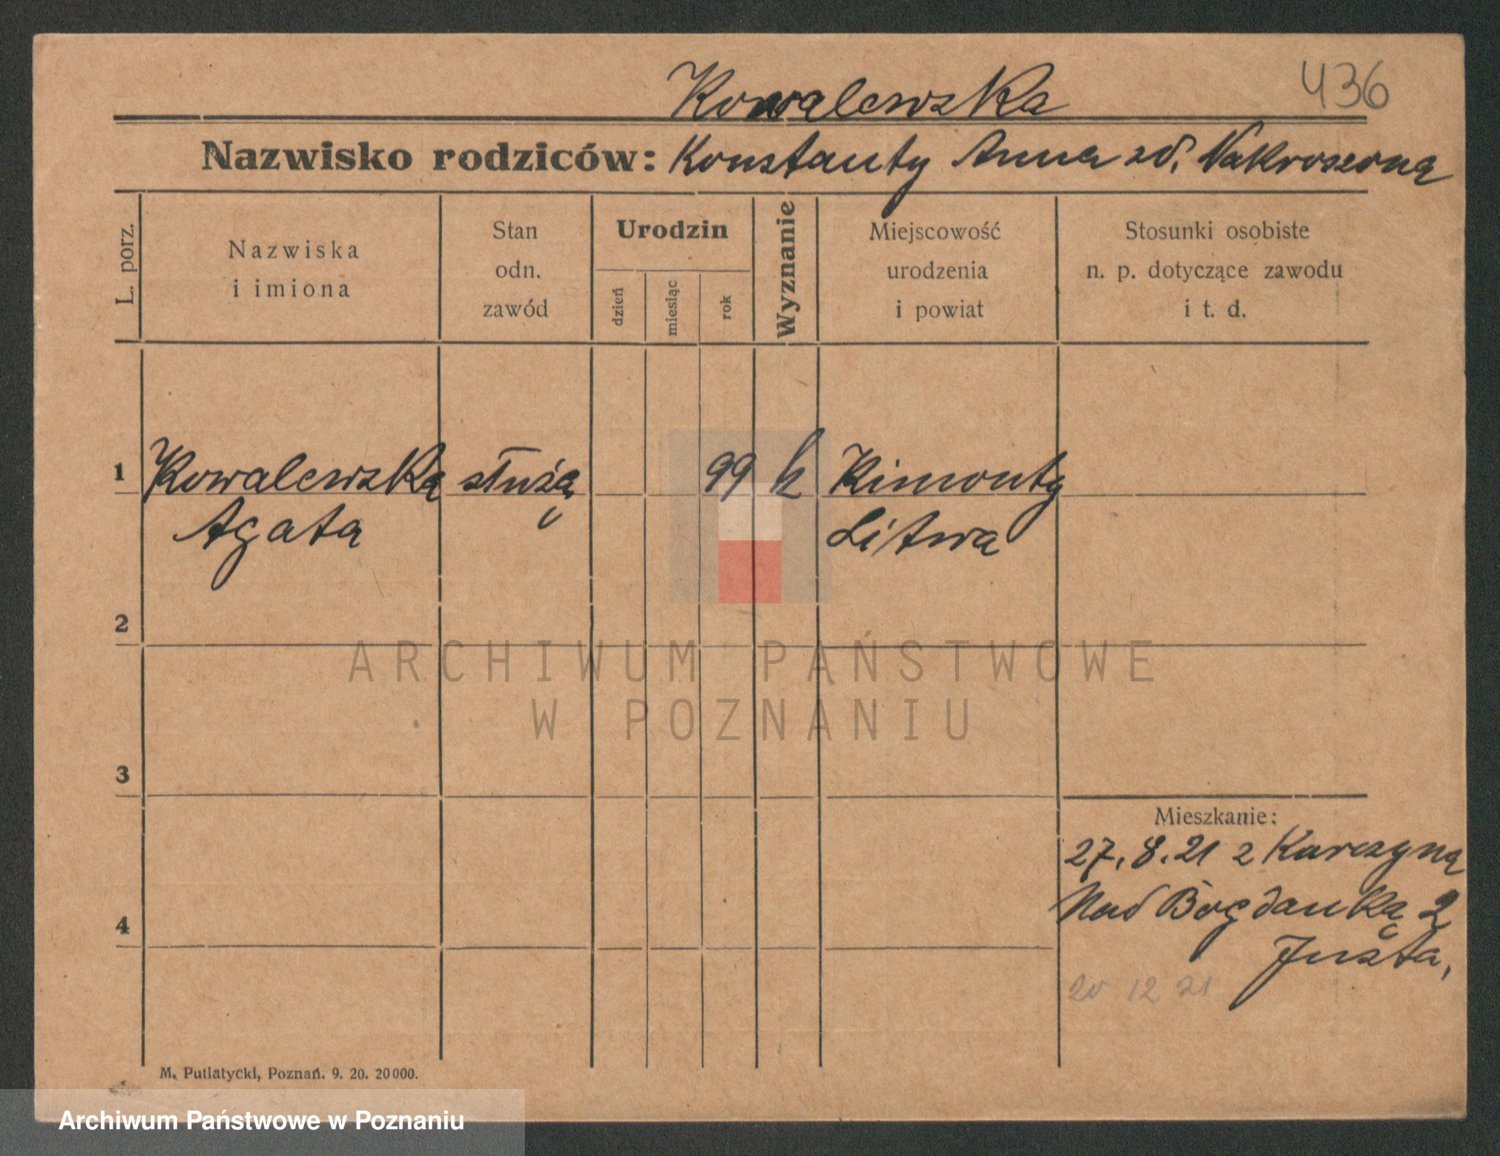 Kowalewska 436
Nazwisko rodziców: Konstanty Anna zd. Nakroszona
L. porz.
Nazwiska
i imiona
Stan
odn.
zawód
Urodzin
dzień
miesiąc
rok
Wyznanie
Miejscowość
urodzenia
i powiat
Stosunki osobiste
n. p. dotyczące zawodu
i t. d.
1 Kowalewska służą 99 k Kimonty
Agata Litwa
2
ARCHIWUM PAŃSTWOWE
W POZNANIU
3
Mieszkanie:
27.8.21 z Kurczyna
4 Nad Bogdanką 2
Justa,
20 12 21
M. Putiatycki, Poznań. 9. 20. 20000.
Archiwum Państwowe w Poznaniu